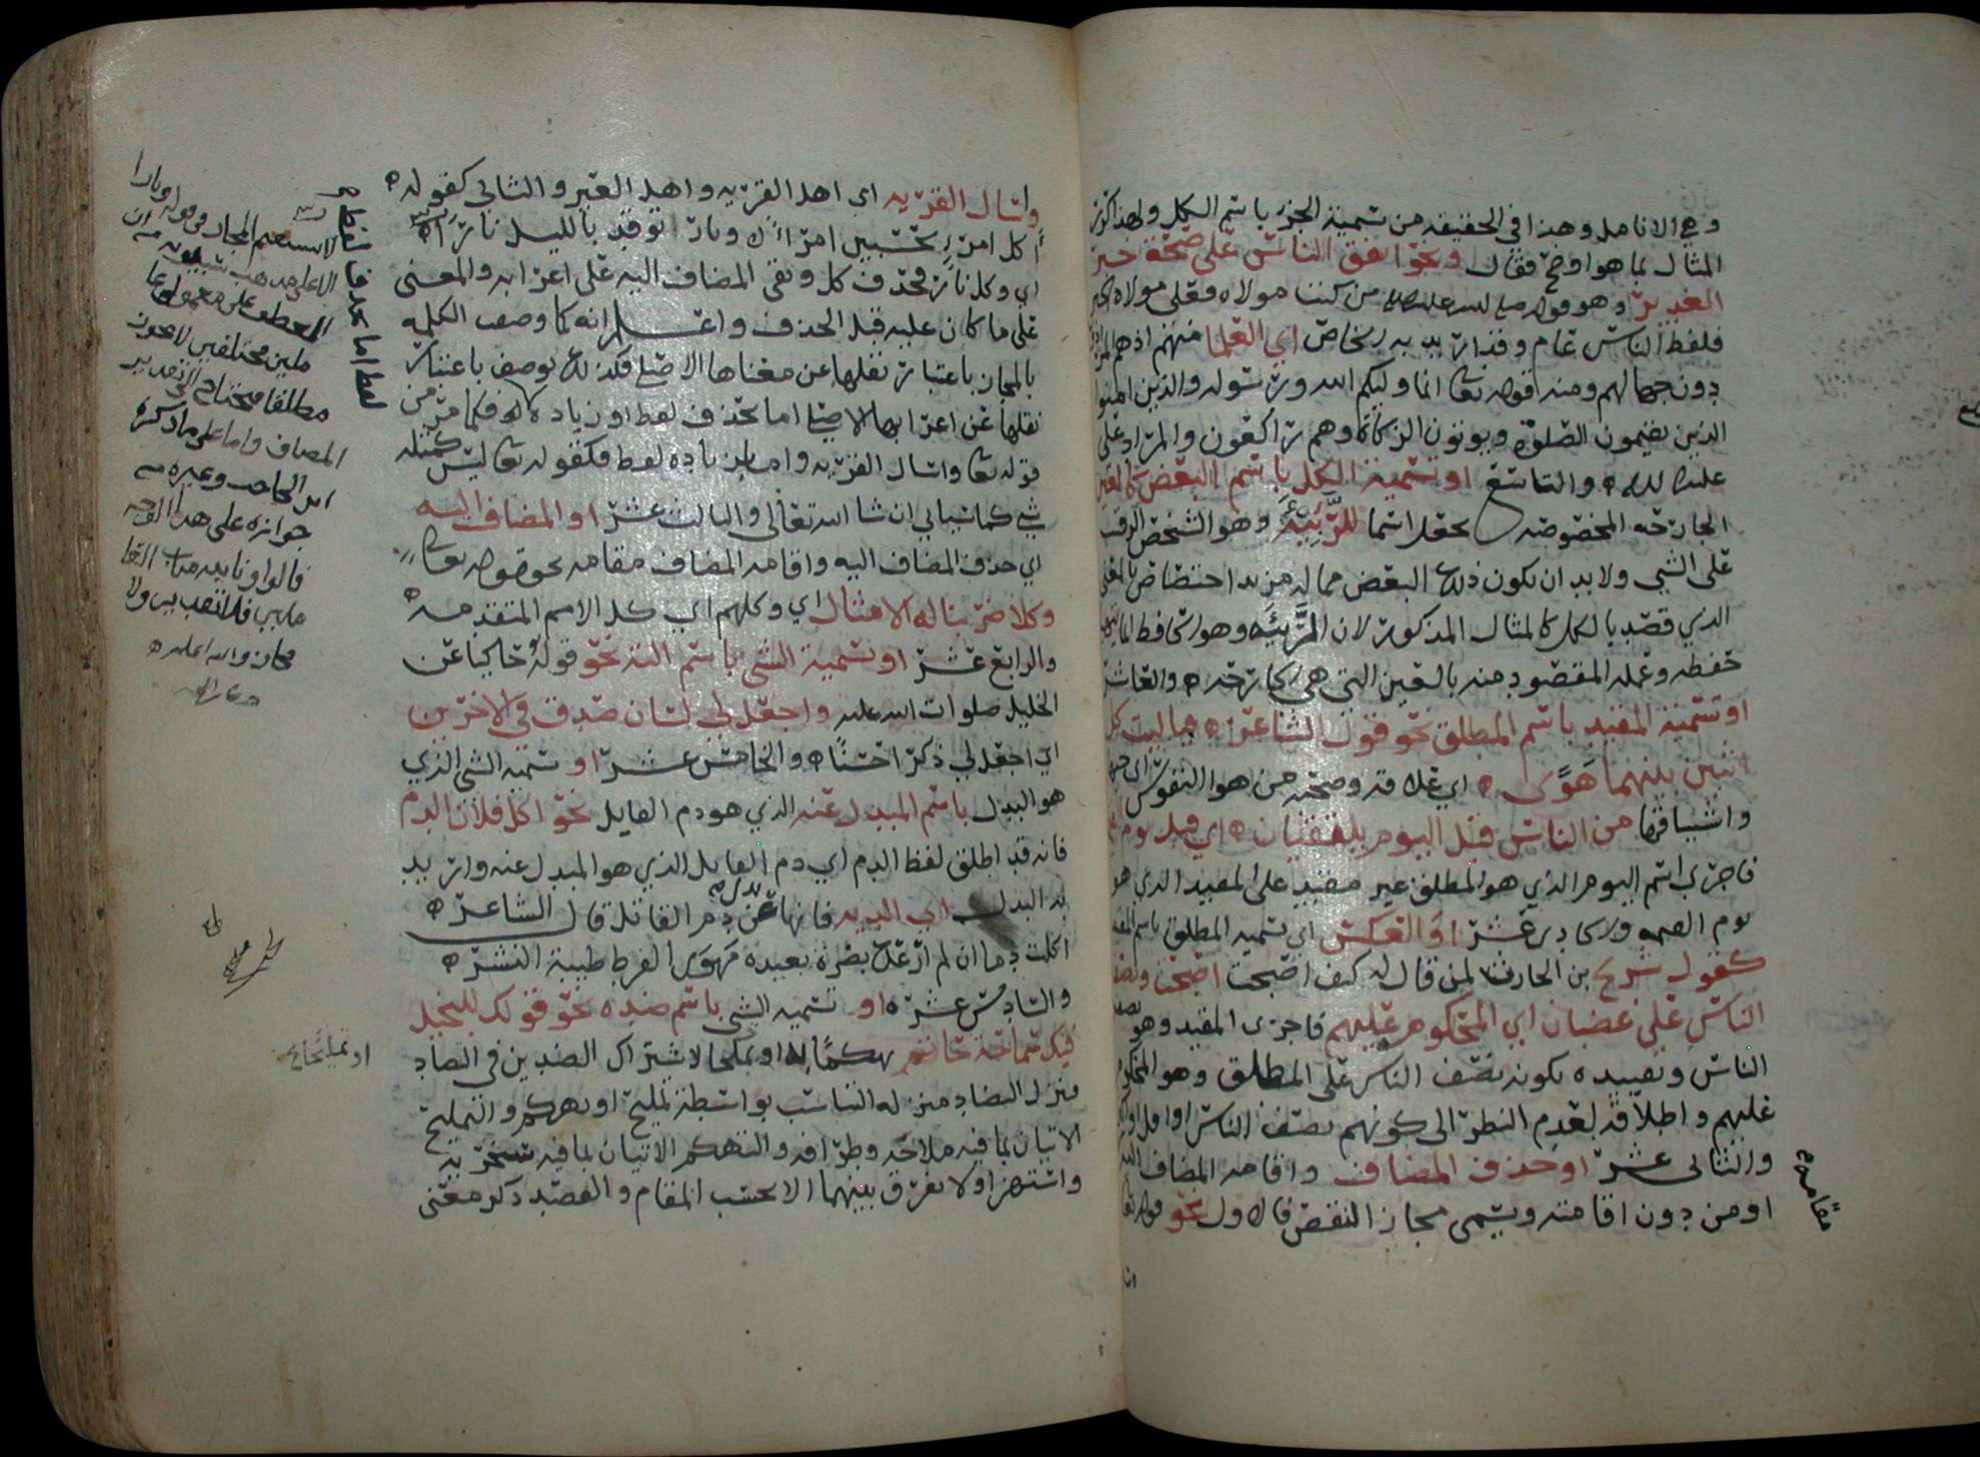 و هي الانامل وهذا في الحقيقه من تسمية الجزء باسم الكل ولهذا كرر
المثال بما هو اوضح فقال ونحو اتفق الناس على صحة خبر
الغدير وهو قوله صلى الله عليه من كنت مولاه فعلي مولاه
فلفظ الناس عام وقد اريد به خاص اي العلما منهم اذ هم
دون جهالهم ومنه قوله تعالى انما وليكم الله ورسوله والذين امنوا
الذين يقيمون الصلوة ويوتون الزكاة وهم راكعون والمراد علي
عليه السلام والتاسع او تسمية الكل باسم البعض كالعين
الجارحه المخصوصه يجعل اسما للرَّبِيَّة وهو الشخص الرقيب
على الشي ولا بد ان يكون ذلك البعض مما له مزيد اختصاص بالمعنى
الذي قصد بالكل كالمثال المذكور لان الرَّبيئه وهو الحافظ انما
حفظه وعمله المقصود منه بالعين التي هي الجارحه والعاشر
او تسمية المقيد باسم المطلق نحو قول الشاعر فيا ليت كل
اثنين بينهما هَوًى اي علاقه وصحته من هوا النفوس
واشتياقها من الناس قبل اليوم يلتقيان اي قبل يوم
فاجرى اسم اليوم الذي هو المطلق غير مقيد على المقيد الذي هو
يوم القيمه والحادي عشر او العكس اي تسميه المطلق باسم المقيد
كقول شريح بن الحارث لمن قال له كيف اصبحت اصبحت ونصف
الناس علي غضبان اي المحكوم عليهم فاجرى المقيد وهو نصف
الناس وتقييده بكونه نصف الناس على المطلق وهو المحكوم
عليهم واطلاقه لعدم النظر الى كونهم نصف الناس او اقل او
والثاني عشر او حذف المضاف واقامه المضاف اليه
مقامه
او من دون اقامته ويسمى مجاز النقص فالاول نحو قوله تعالى
وا
واسال القريه اي اهل القريه واهل العير والثاني كقوله
أكل امرء تحسبين امرءا ونار توقد بالليل نارا
اي وكل نار فحذف كل وبقي المضاف اليه على اعرابه والمعنى
على ما كان عليه قبل الحذف واعلم انه كما وصف الكلمه
بالمجاز باعتبار نقلها عن معناها الاصلي فكذلك يوصف باعتبار
نقلها عن اعرابها الاصلي اما بحذف لفظ او زياده فكما مر من
قوله تعالى واسال القريه واما بزياده لفظ فكقوله تعالى ليس كمثله
شي كما سياتي ان شا الله تعالى والثالث عشر او المضاف اليه
اي حذف المضاف اليه واقامه المضاف مقامه نحو قوله تعالى
وكلا ضربنا له الامثال اي وكلهم اي كل الامم المتقدمه
والرابع عشر او تسمية الشي باسم الته نحو قوله حاكيا عن
الخليل صلوات الله عليه واجعل لي لسان صدق في الاخرين
اي اجعل لي ذكرا حسنا والخامس عشر او تسميه الشي الذي
هو البدل باسم المبدل عنه الذي هو دم القايل نحو اكل فلان الدم
فانه قد اطلق لفظ الدم اي دم القايل الذي هو المبدل عنه واريد
به البدل اي الديه فانها بدل عن دم القاتل قال الشاعر
اكلت دما ان لم ارعك بضرة بعيده مهوى القرط طيبة النشر
والسادس عشر او تسميه الشي باسم ضده نحو قولك للبخيل
فيك سماحة حاتم تهكما به او تمليحا لاشتراك الضدين في التضاد
فنزل التضاد منزله التناسب بواسطة تمليح او تهكم والتمليح
الاتيان بما فيه ملاحه وظرافه والتهكم الاتيان بما فيه سخريه
واستهزا ولا يفرق بينهما الا بحسب المقام والقصد ذكر معنى
العطف على معمولي عا
ملين مختلفين لا يجوز
مطلقا فيحتاج الى تقدير
المضاف واما على ما ذكره
ابن الحاجب وغيره من
جوازه على هذا الوجه
مجاز والله اعلم
او تمليحا